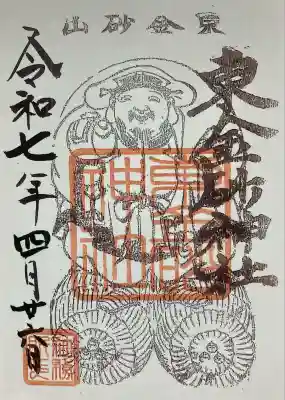 東金砂山
東金砂神社
令和七年四月廿六日
東金砂
神社